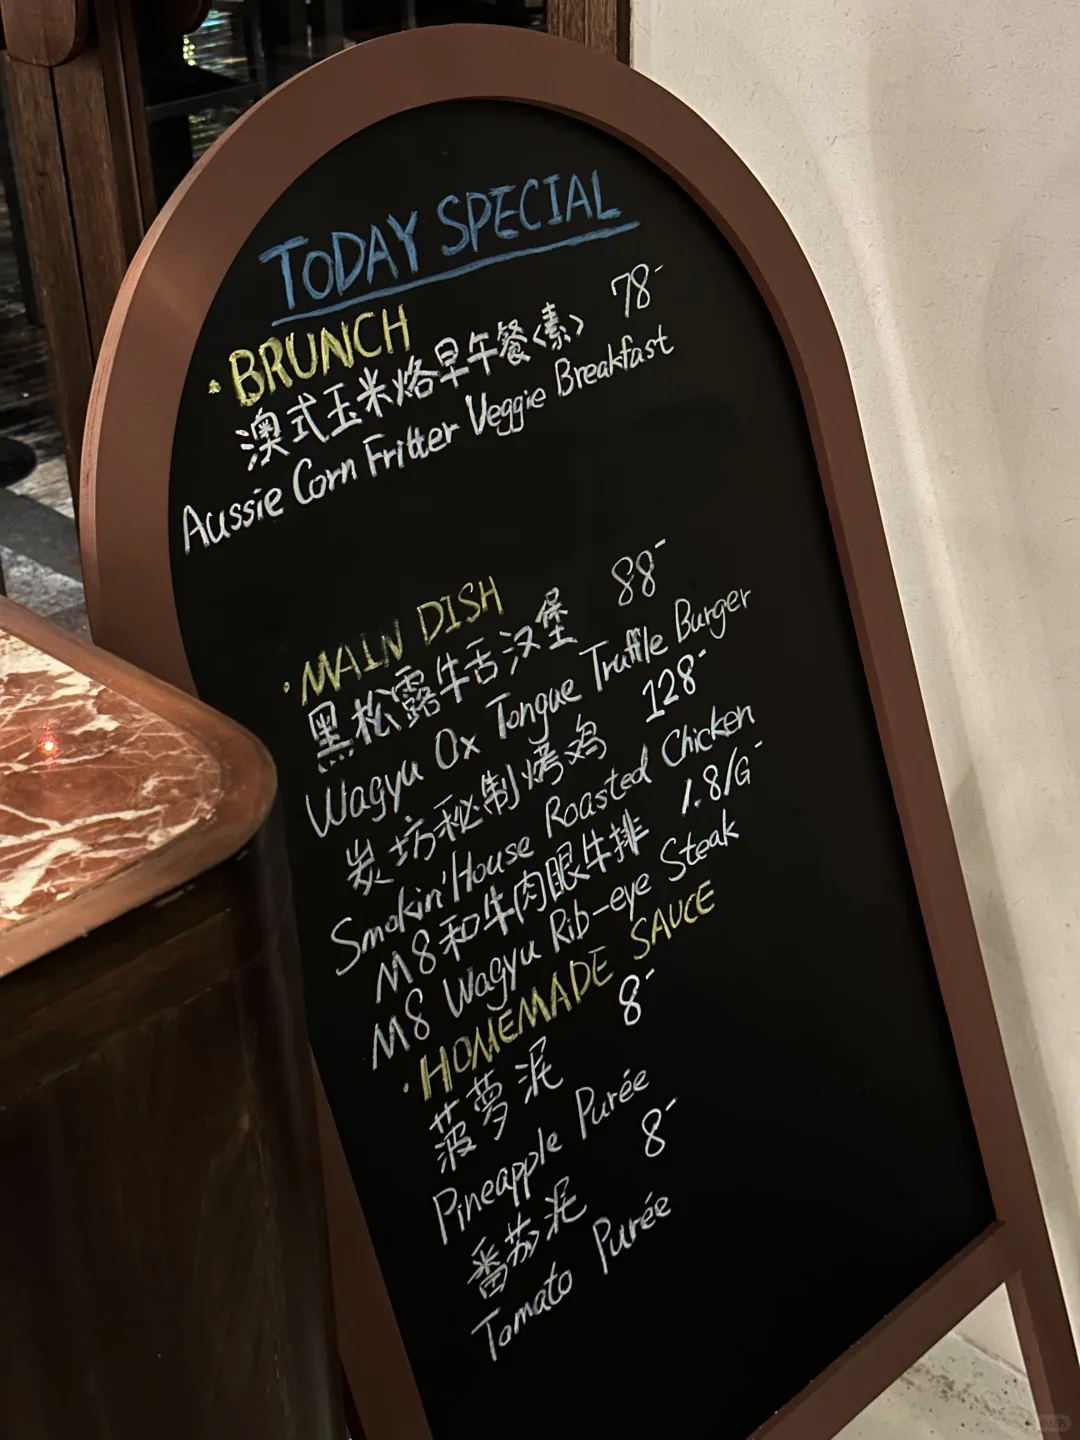 TODAY SPECIAL
· BRUNCH
澳式玉米烙早午餐<素> 78-
Aussie Corn Fritter Veggie Breakfast
· MAIN DISH
黑松露牛舌汉堡 88-
Wagyu Ox Tongue Truffle Burger
炭坊秘制烤鸡 128-
Smokin' House Roasted Chicken
M8和牛肉眼牛排 1.8/G-
M8 Wagyu Rib-eye Steak
· HOMEMADE SAUCE
菠萝泥 8-
Pineapple Purée
番茄泥 8-
Tomato Purée